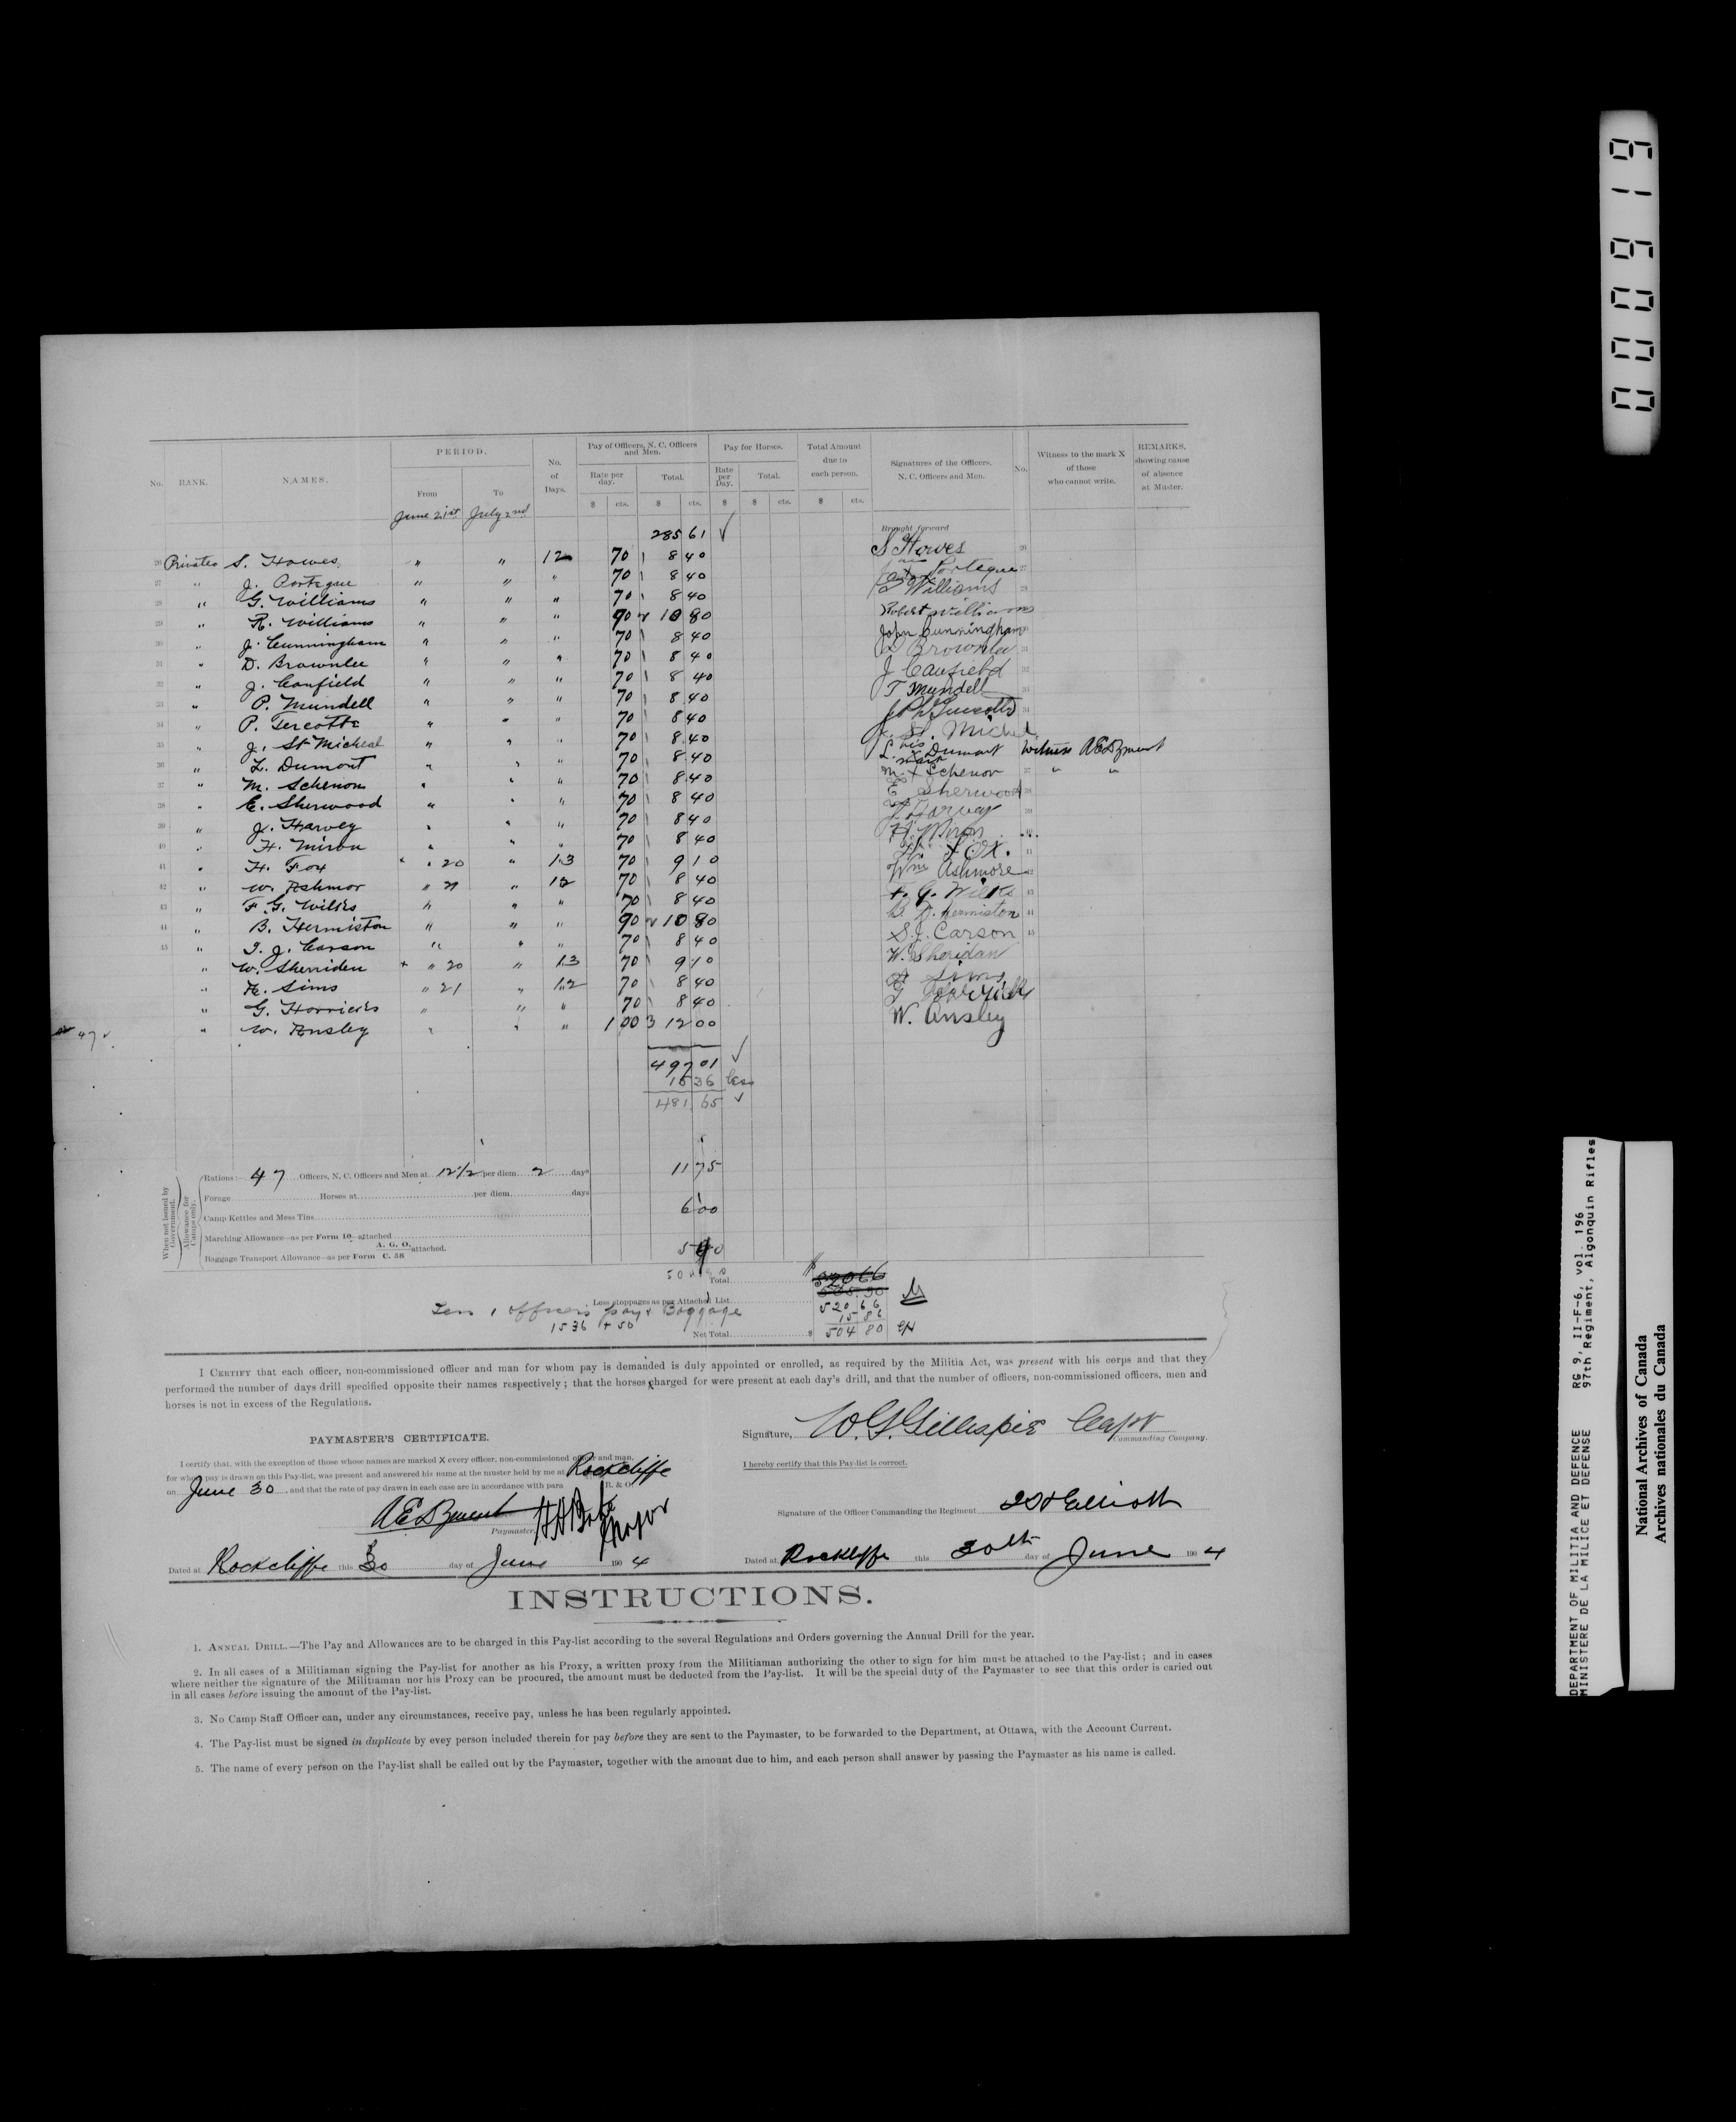 No. RANK. NAMES. PERIOD. No. of Days. Pay of Officers, N. C. Officers and Men. Pay for Horses. Total Amount due to each person. Signatures of the Officers, N. C. Officers and Men. No. Witness to the mark X of those who cannot write. REMARKS, showing cause of absence at Muster.
From To Rate per day. Total. Rate per Day. Total.
June 21st July 2nd $ cts. $ cts. $ $ cts. $ cts.
285 61 Brought forward
26 Privates S. Howes " " 12 70 8 40 S Howes 26
27 " J. Portegue " " " 70 8 40 Portegue 27
28 " G. Williams " " " 70 8 40 G Williams 28
29 " R. Williams " " " 90 10 80 Robert Williams
30 " J. Cunningham " " " 70 8 40 John Cunningham
31 " D. Brownlee " " " 70 8 40 D Brownlee 31
32 " J. Canfield " " " 70 8 40 J Canfield 32
33 " P. Mundell " " " 70 8 40 T Mundell
34 " P. Tercotte " " " 70 8 40
35 " J. St Micheal " " " 70 8 40 St. Michel
36 " L. Dumont " " " 70 8 40 L. his X mark Dumont Witness
37 " M. Schenon " " " 70 8 40 M. X Schenon 37 " "
38 " E. Sherwood " " " 70 8 40 E Sherwood 38
39 " J. Harvey " " " 70 8 40 J Harvey 39
40 " H. Miron " " " 70 8 40 H. Miron
41 " H. Fox " " 20 " 13 70 9 10 Fox. 41
42 " W. Ashmor " 21 " 12 70 8 40 Wm Ashmore 42
43 " F. G. Wilkes " " " 70 8 40 F. G. Wilkes 43
44 " B. Hermiston " " " 90 10 80 B. D. Hermiston 44
45 " S. J. Carson " " " 70 8 40 S. J. Carson 45
" W. Sherriden + " 20 " 13 70 9 10 W. Sheridan
" H. Sims " 21 " 12 70 8 40 Sims
" G. Horricks " " " 70 8 40
47 " W. Ansley " " " 1 00 12 00 W. Ansley
497 01
15 36 less
481 65
When not issued by Government. Allowance for Camps only.
Rations:— 47 Officers, N. C. Officers and Men at 12 1/2 per diem 2 days 11 75
Forage Horses at per diem days
Camp Kettles and Mess Tins 6 00
Marching Allowance—as per Form 10 attached
Baggage Transport Allowance—as per Form A. G. O. C. 58 attached.
Total $ 520 66
Less stoppages as per Attached List
520 66
Less 1 officers pay & Baggage 15 86
1536 + 50 Net Total $ 504 80
I CERTIFY that each officer, non-commissioned officer and man for whom pay is demanded is duly appointed or enrolled, as required by the Militia Act, was present with his corps and that they
performed the number of days drill specified opposite their names respectively; that the horses charged for were present at each day's drill, and that the number of officers, non-commissioned officers, men and
horses is not in excess of the Regulations.
Signature, W. G. Gillespie Capt
Commanding Company.
PAYMASTER'S CERTIFICATE.
I certify that, with the exception of those whose names are marked X every officer, non-commissioned officer and man,
for whom pay is drawn on this Pay-list, was present and answered his name at the muster held by me at Rockcliffe
on June 30, and that the rate of pay drawn in each case are in accordance with para R. & O.
I hereby certify that this Pay-list is correct.
Paymaster Major
Signature of the Officer Commanding the Regiment Elliott
Dated at Rockcliffe this 30 day of June 1904
Dated at Rockliffe this 30th day of June 1904
INSTRUCTIONS.
1. ANNUAL DRILL.—The Pay and Allowances are to be charged in this Pay-list according to the several Regulations and Orders governing the Annual Drill for the year.
2. In all cases of a Militiaman signing the Pay-list for another as his Proxy, a written proxy from the Militiaman authorizing the other to sign for him must be attached to the Pay-list; and in cases
where neither the signature of the Militiaman nor his Proxy can be procured, the amount must be deducted from the Pay-list. It will be the special duty of the Paymaster to see that this order is caried out
in all cases before issuing the amount of the Pay-list.
3. No Camp Staff Officer can, under any circumstances, receive pay, unless he has been regularly appointed.
4. The Pay-list must be signed in duplicate by evey person included therein for pay before they are sent to the Paymaster, to be forwarded to the Department, at Ottawa, with the Account Current.
5. The name of every person on the Pay-list shall be called out by the Paymaster, together with the amount due to him, and each person shall answer by passing the Paymaster as his name is called.
DEPARTMENT OF MILITIA AND DEFENCE RG 9, II-F-6, vol. 196
MINISTERE DE LA MILICE ET DEFENSE 97th Regiment, Algonquin Rifles
National Archives of Canada
Archives nationales du Canada